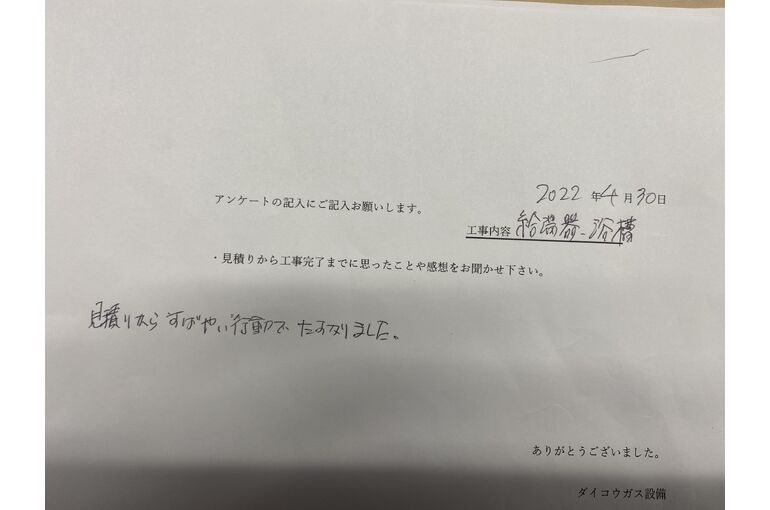 2022 年 4 月 30 日
アンケートの記入にご記入お願いします。
工事内容 給湯器、浴槽
・見積りから工事完了までに思ったことや感想をお聞かせ下さい。
見積りから すばやい行動で たすかりました。
ありがとうございました。
ダイコウガス設備